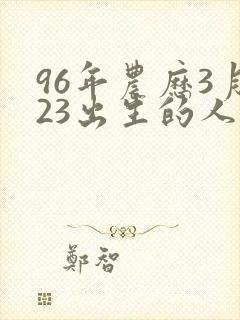 96年農歷3月
23出生的人
鄭智